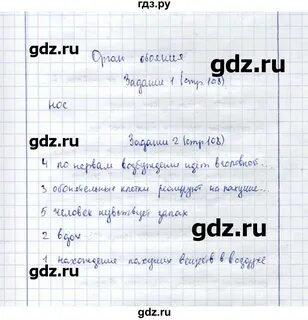 гдз.ру
gdz.ru gdz.ru
Орган обоняния
Задание 1 (стр. 108)
gdz.ru
нос
gdz.ru
Задание 2 (стр. 108)
4 по нервам возбуждение идет в головной...
gdz.ru
3 обонятельные клетки реагируют на пахучие...
5 человек чувствует запах
gdz.ru gdz.ru
2 вдох
1 нахождение пахучих веществ в воздухе
gdz.ru